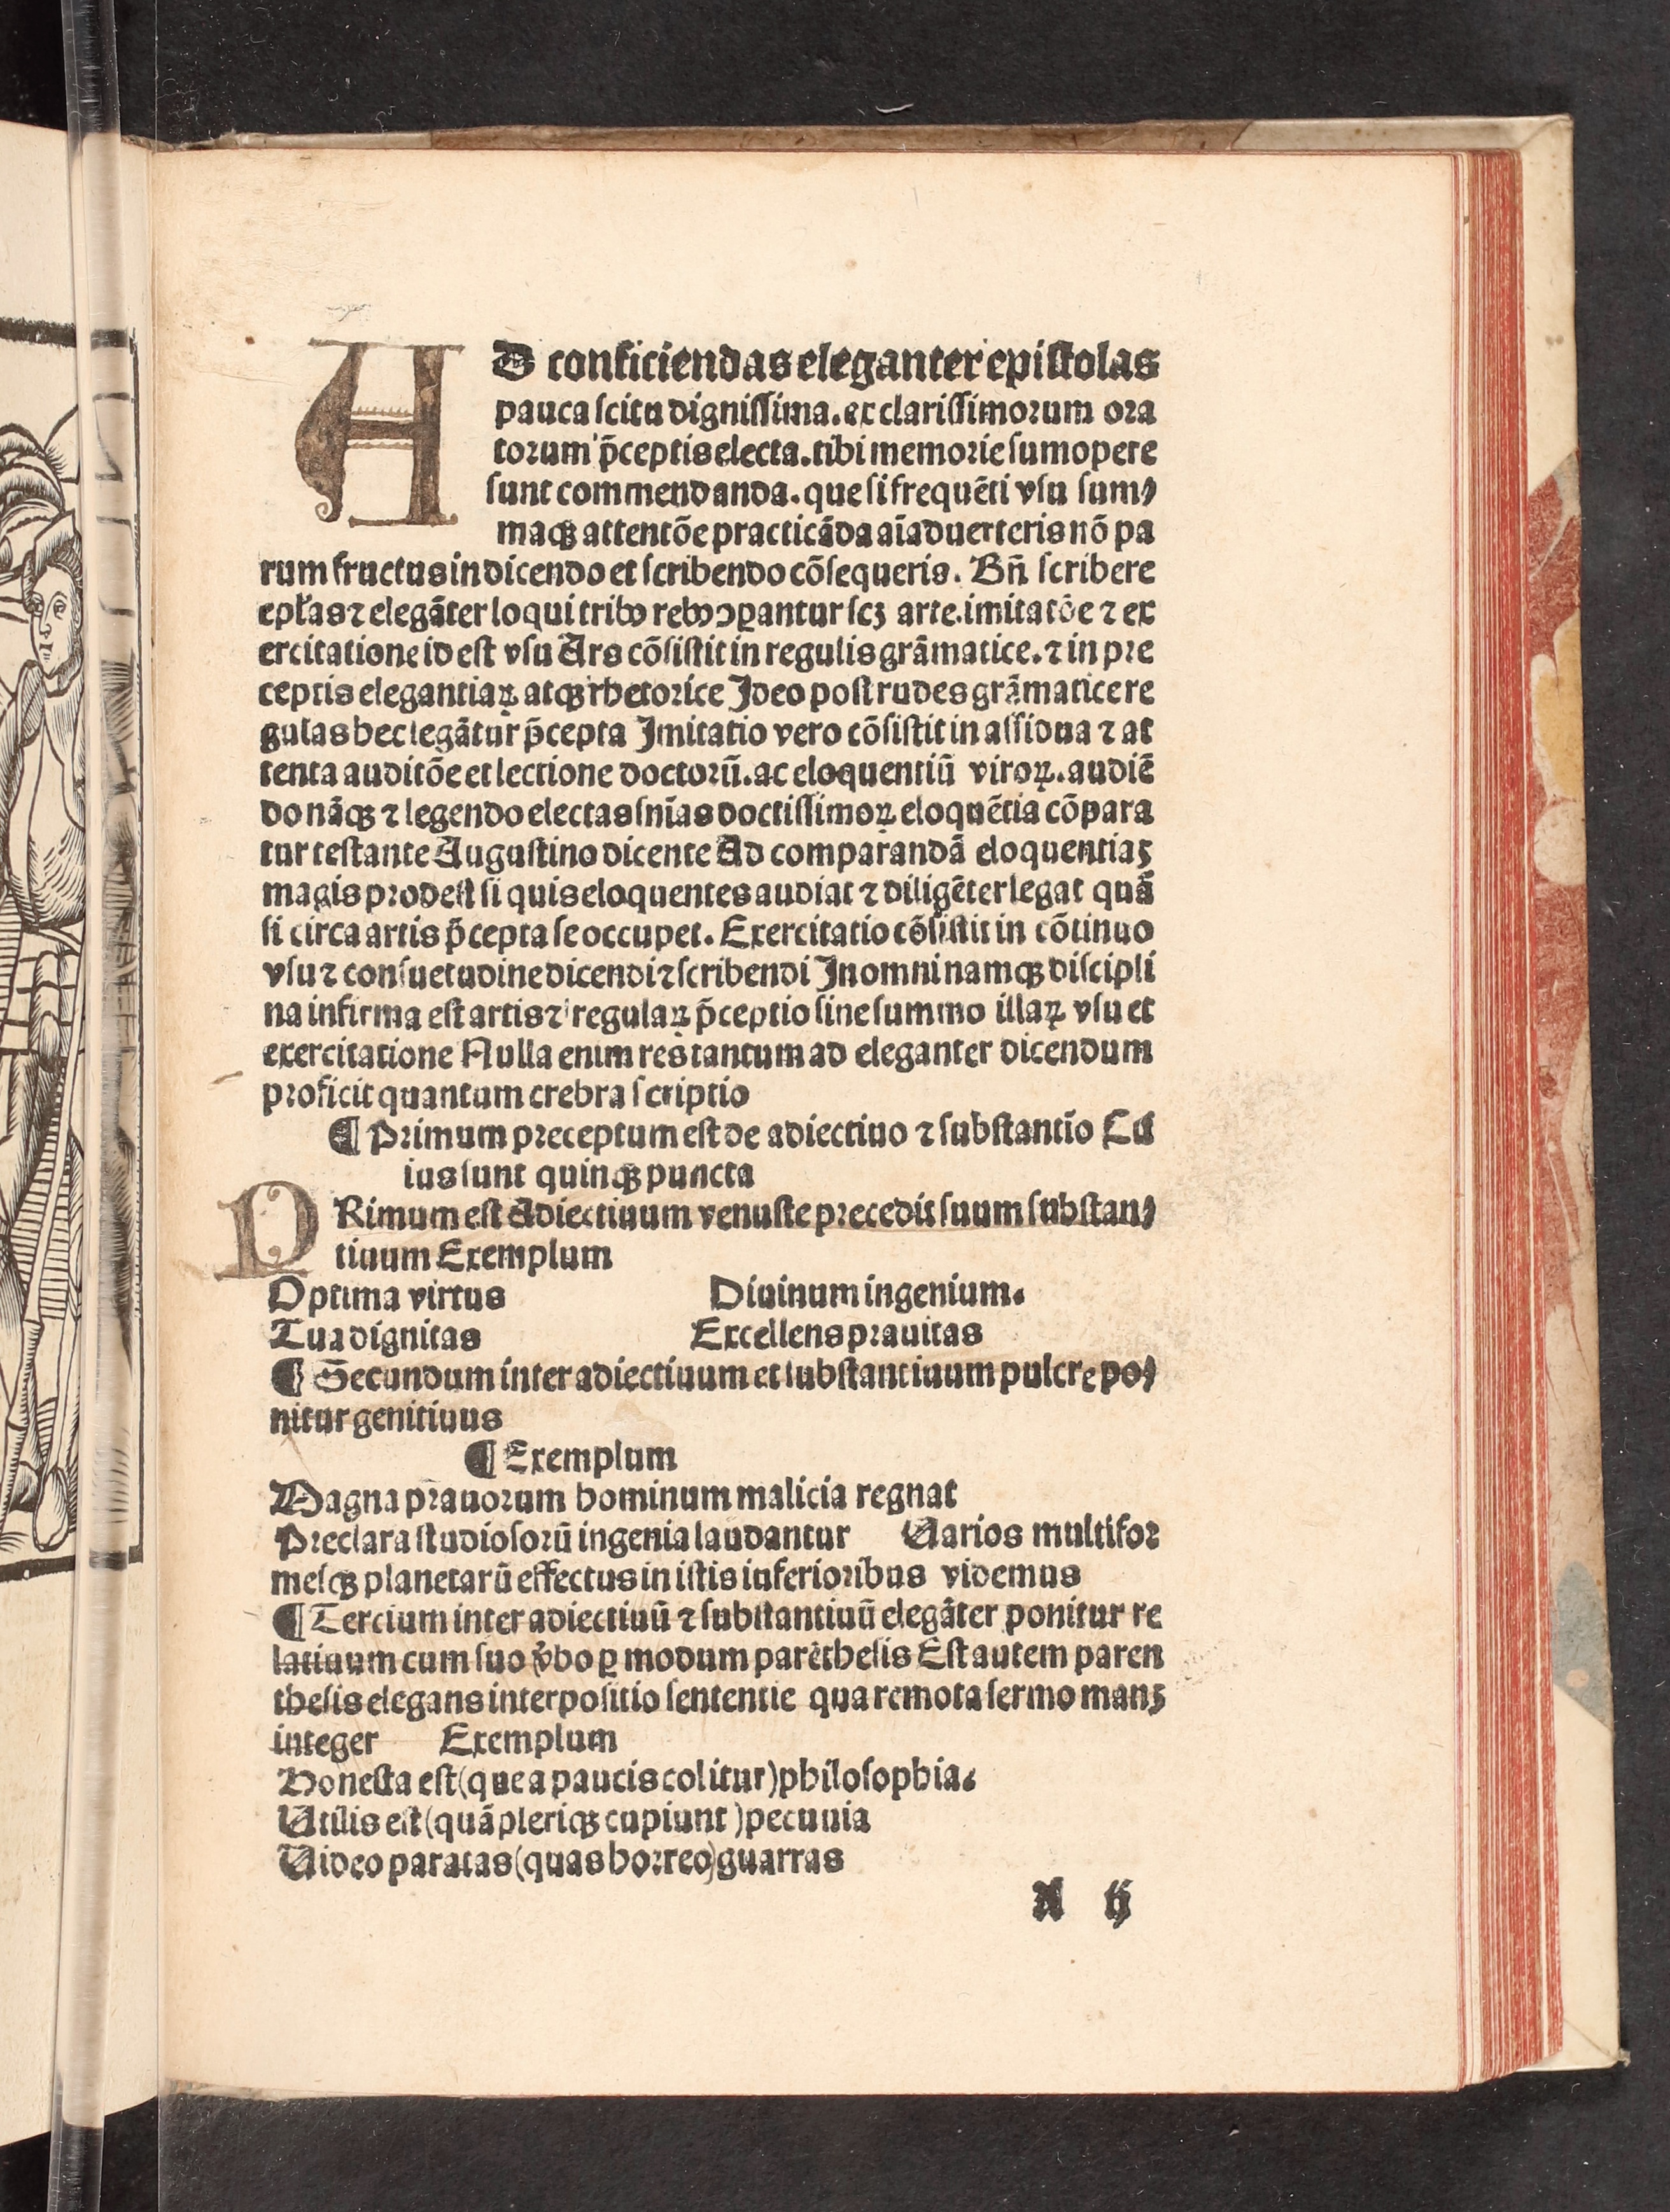 AD conficiendas eleganter epistolas
pauca scitu dignissima. ex clarissimorum ora
torum p̄ceptis electa. tibi memorie sumopere
sunt commendanda. que si frequēti vsu sum⸗
maqꝫ attentōe practicāda aīaduerteris nō pa
rum fructus in dicendo et scribendo cōsequeris. Bn̄ scribere
ep̄las ⁊ elegāter loqui tribꝰ rebꝰ ↄꝑantur scꝫ arte. imitatōe ⁊ ex
ercitatione id est vsu Ars cōsistit in regulis grāmatice. ⁊ in pre
ceptis elegantiaꝝ atqꝫ rhetorice Ideo post rudes grāmatice re
gulas hec legātur p̄cepta Imitatio vero cōsistit in assidua ⁊ at
tenta auditōe et lectione doctorū. ac eloquentiū viroꝝ. audiē
do nāqꝫ ⁊ legendo electas snīas doctissimoꝝ eloquētia cōpara
tur testante Augustino dicente Ad comparandā eloquentiaꝫ
magis prodest si quis eloquentes audiat ⁊ diligēter legat quā
si circa artis p̄cepta se occupet. Exercitatio cōsistit in cōtinuo
vsu ⁊ consuetudine dicendi ⁊ scribendi In omni namqꝫ discipli
na infirma est artis ⁊ regulaꝝ p̄ceptio sine summo illaꝝ vsu et
exercitatione Nulla enim res tantum ad eleganter dicendum
proficit quantum crebra scriptio
¶ Primum preceptum est de adiectiuo ⁊ substantīo Cu
ius sunt quinqꝫ puncta
PRimum est Adiectiuum venuste precedit suum substan⸗
tiuum Exemplum
Optima virtus Diuinum ingenium.
Tua dignitas Excellens prauitas
¶ Secundum inter adiectiuum et substantiuum pulcre po⸗
nitur genitiuus
¶ Exemplum
Magna prauorum hominum malicia regnat
Preclara studiosorū ingenia laudantur Uarios multifor
mesqꝫ planetarū effectus in istis inferioribus videmus
¶ Tercium inter adiectiuū ⁊ substantiuū elegāter ponitur re
latiuum cum suo v̄bo ꝑ modum parēthesis Est autem paren
thesis elegans interpositio sententie qua remota sermo manꝫ
integer Exemplum
Honesta est (que a paucis colitur) philosophia.
Utilis est (quā pleriqꝫ cupiunt) pecunia
Uideo paratas (quas horreo) guarras
A ij